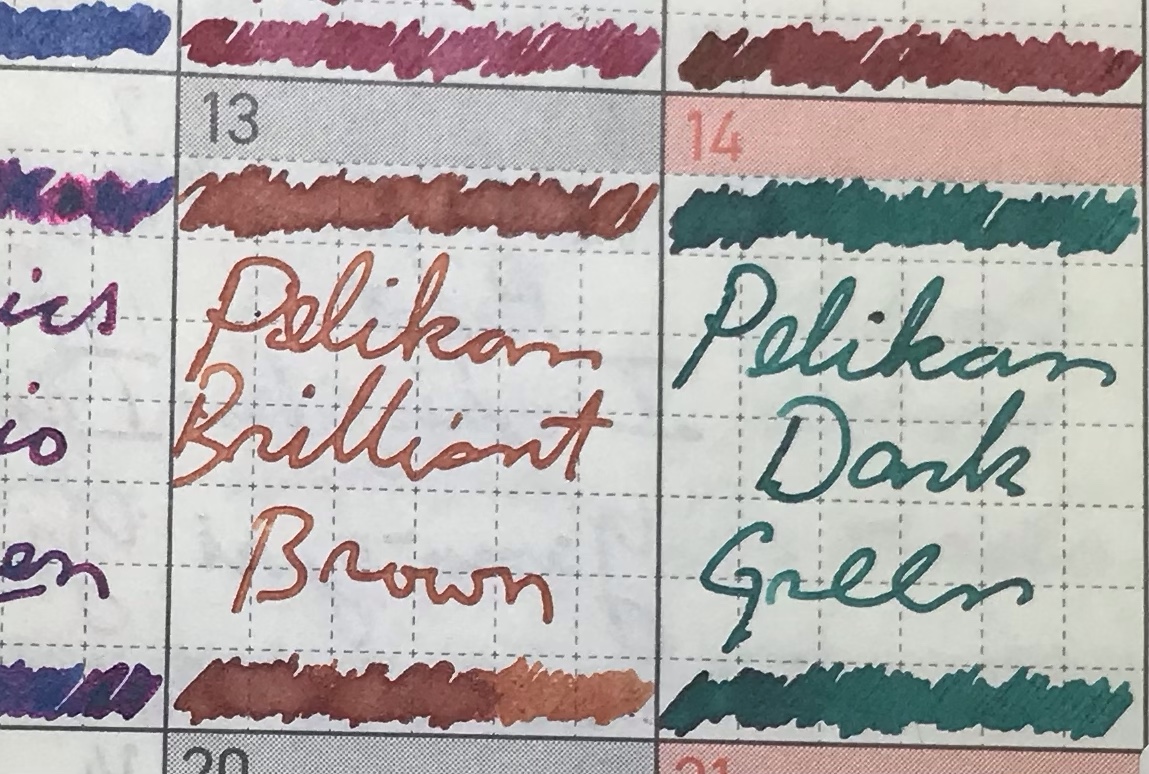 13
14
ics
Pelikan
Pelikan
io
Brilliant
Dark
en
Brown
Green
20
21